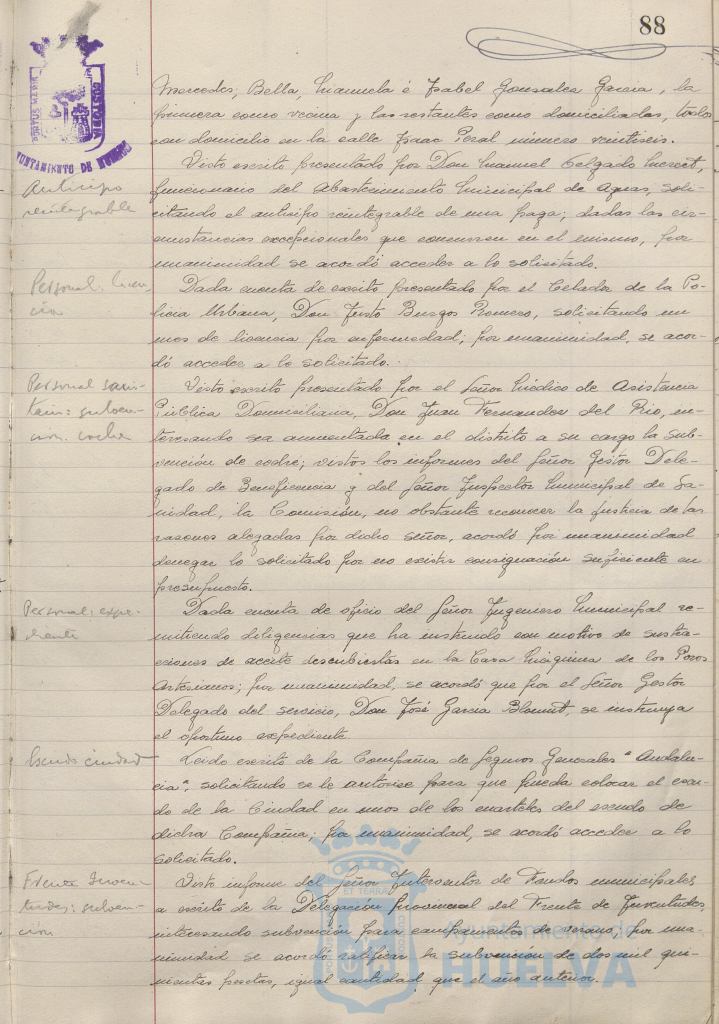 88
PORTUS MARIS
CUSTODIA
AYUNTAMIENTO DE HUELVA
Mercedes, Bella, Manuela é Ysabel Gonzales Garcia, la
primera como vecina y las restantes como domiciliadas, todas
con domicilio en la calle Ysaac Peral número veintiseis.
Anticipo
reintegrable
Visto escrito presentado por Don Manuel Delgado
funcionario del Abastecimiento Municipal de Aguas, soli-
citando el anticipo reintegrable de una paga; dadas las cir-
cunstancias excepcionales que concurren en el mismo, por
unanimidad se acordó acceder a lo solicitado.
Personal: licen-
cia
Dada cuenta de escrito presentado por el Celador de la Po-
licia Urbana, Don Justo Burgos Romero, solicitando un
mes de licencia por enfermedad; por unanimidad, se acor-
dó acceder a lo solicitado.
Personal sani-
tario: subven-
cion coche
Visto escrito presentado por el Señor Médico de Asistencia
Pública Domiciliaria, Don Juan Fernandez del Rio, in-
teresando sea aumentada en el distrito a su cargo la sub-
vención de coche; vistos los informes del Señor Gestor Dele-
gado de Beneficencia y del Señor Ynspector Municipal de Sa-
nidad, la Comisión, no obstante reconocer la justicia de las
razones alegadas por dicho señor, acordó por unanimidad
denegar lo solicitado por no existir consignación suficiente en
presupuesto.
Personal: expe-
diente
Dada cuenta de oficio del Señor Yngeniero Municipal re-
mitiendo diligencias que ha instruido con motivo de sustra-
cciones de aceite descubiertas en la Casa Máquina de los Pozos
Artesianos; por unanimidad, se acordó que por el Señor Gestor
Delegado del servicio, Don José Garcia se instruya
el oportuno expediente
Escudo ciudad
Leido escrito de la Compañia de Seguros Generales "Andalu-
cia", solicitando se le autorice para que pueda colocar el escu-
do de la Ciudad en unos de los cuarteles del escudo de
dicha Compañia; por unanimidad, se acordó acceder a lo
solicitado.
Frente Juven-
tudes: subven-
cion
Visto informe del Señor Ynterventor de Fondos municipales
a escrito de la Delegación Provincial del Frente de Juventudes,
interesando subvención para campamentos de verano, por una-
nimidad se acordó ratificar la subvencion de dos mil qui-
nientas pesetas, igual cantidad que el año anterior.
ET TERRAE
PORTUS MARIS
CUSTODIA
Ayuntamiento de
HUELVA